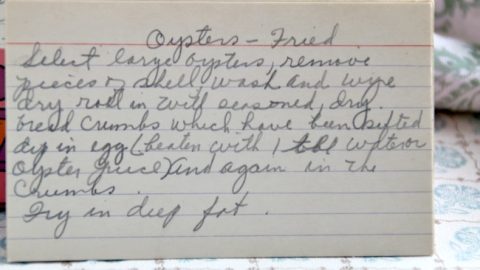 Oysters – Fried
Select large oysters, remove
pieces of shell, wash and wipe
dry roll in with seasoned, dry
bread crumbs which have been sifted
dip in egg (beaten with 1 tbl water or
oyster juice) and again in the
crumbs.
Fry in deep fat.